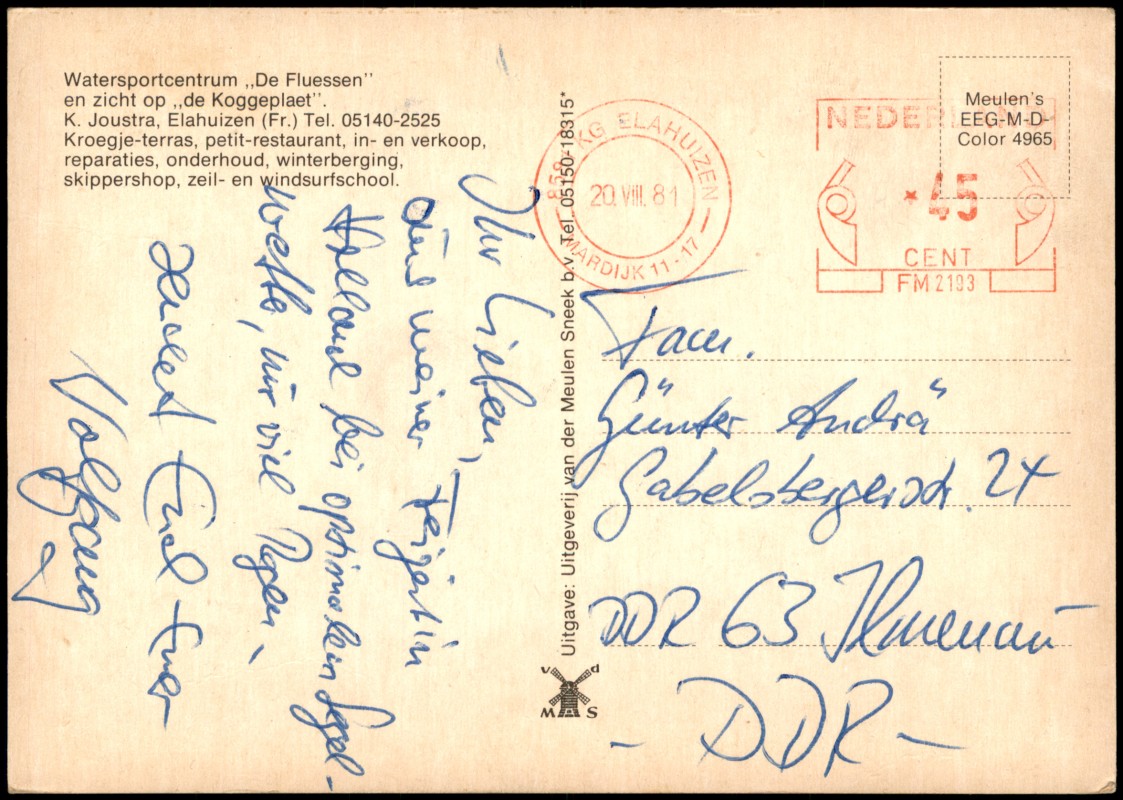 Watersportcentrum „De Fluessen”
en zicht op „de Koggeplaet”.
K. Joustra, Elahuizen (Fr.) Tel. 05140-2525
Kroegje-terras, petit-restaurant, in- en verkoop,
reparaties, onderhoud, winterberging,
skippershop, zeil- en windsurfschool.
Ihr Lieben,
meiner in
Holland bei optimalem Segel-
wetter, nur viel Regen.
Euer
Wolfgang
Uitgave: Uitgeverij van der Meulen Sneek b.v. Tel. 05150-18315*
v d
M S
KG ELAHUIZEN
20.VIII.81
MARDIJK 11-17
NEDERLAND
*45
CENT
FM 2193
Meulen's
EEG-M-D-
Color 4965
Fam.
Günter Andrä
Gabelsbergerstr. 24
DDR 63 Ilmenau
- DDR -